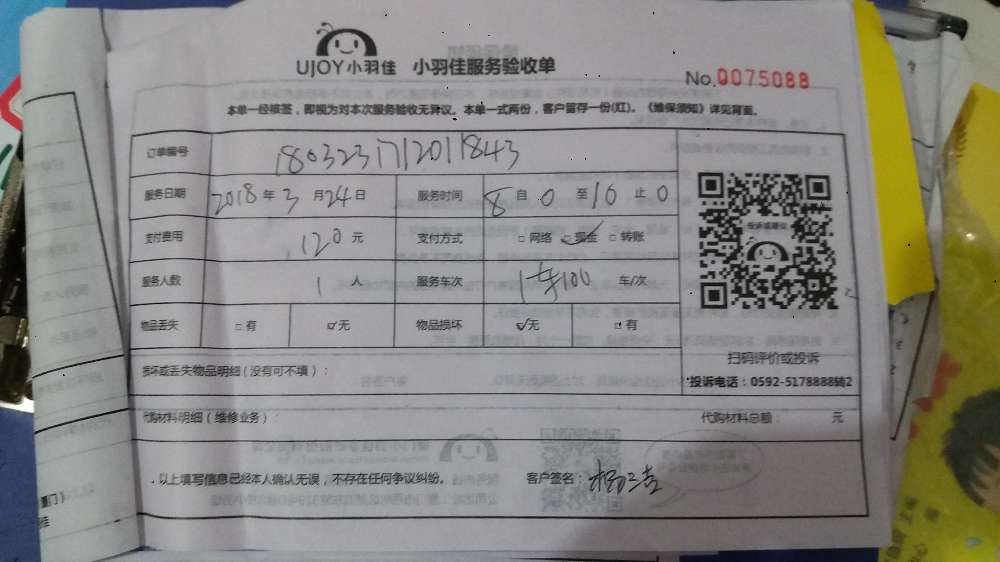 UJOY小羽佳 小羽佳服务验收单
No.0075088
本单一经核签，即视为对本次服务验收无异议。本单一式两份，客户留存一份(红)。《维保须知》详见背面。
订单编号 1803231712011843
服务日期 2018年3月24日 服务时间 8自0至10止0
支付费用 120元 支付方式 □网络 ☑现金 □转账
投诉或建议
服务人数 1人 服务车次 1车100 车/次
物品丢失 □有 ☑无 物品损坏 ☑无 □有
扫码评价或投诉
损坏或丢失物品明细（没有可不填）：
*投诉电话：0592-5178888转2
代购材料明细（维修业务）： 代购材料总额： 元
以上填写信息已经本人确认无误，不存在任何争议纠纷。 客户签名：